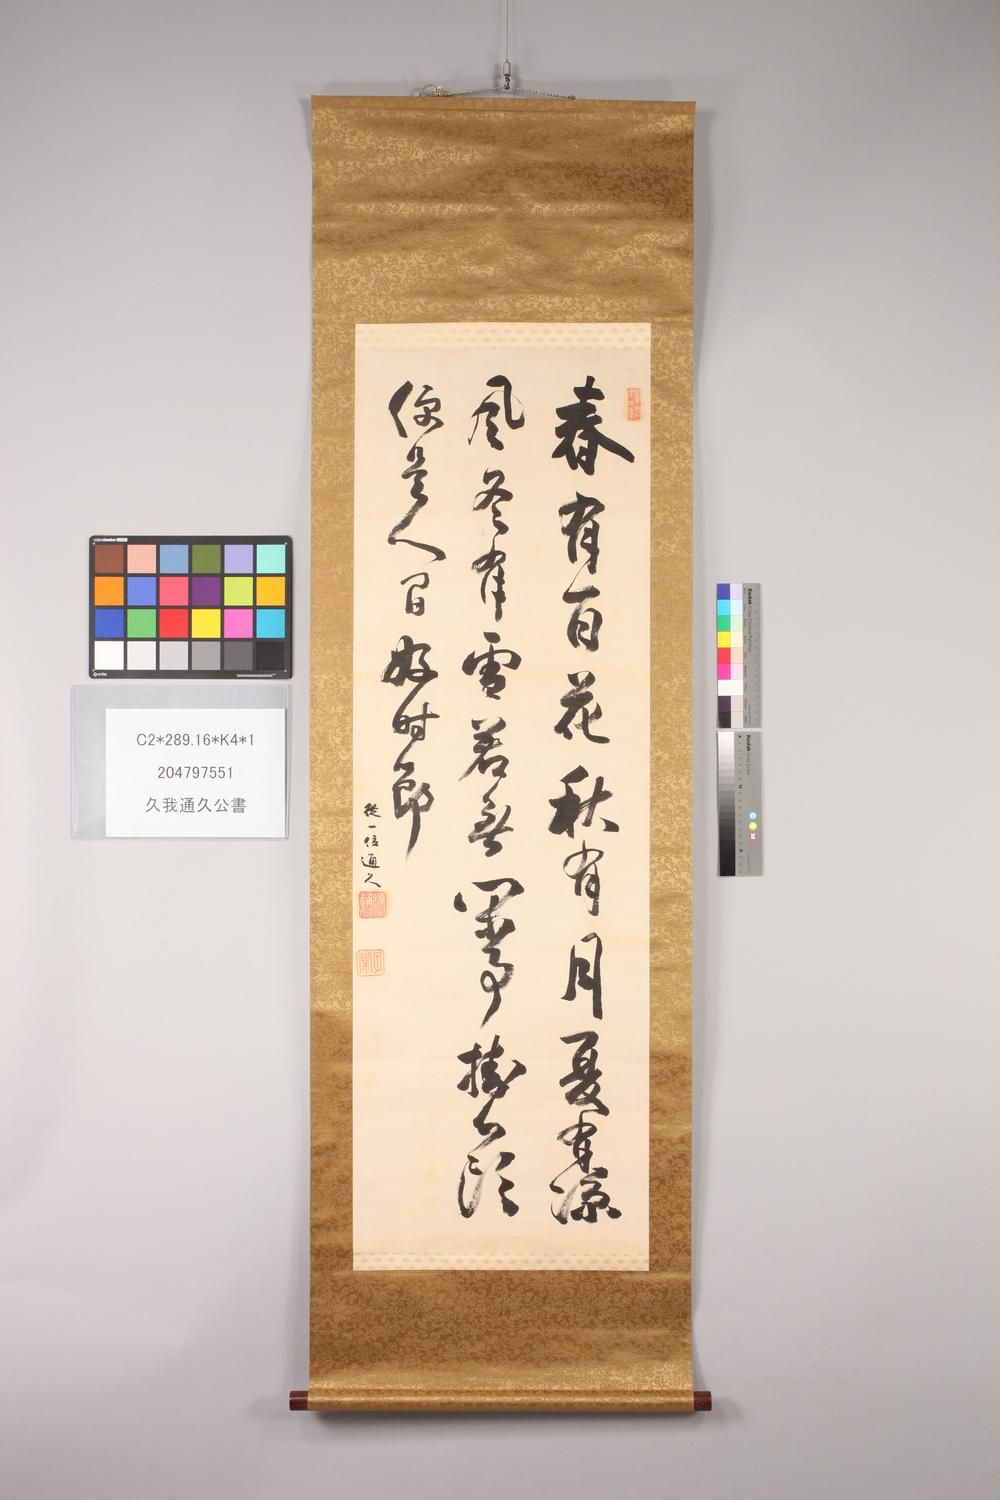 春有百花秋有月夏有凉
風冬有雪若無閑事掛心頭
便是人間好時節
從一位通久
C2*289.16*K4*1
204797551
久我通久公書
Kodak Color Control Patches
Kodak Gray Scale